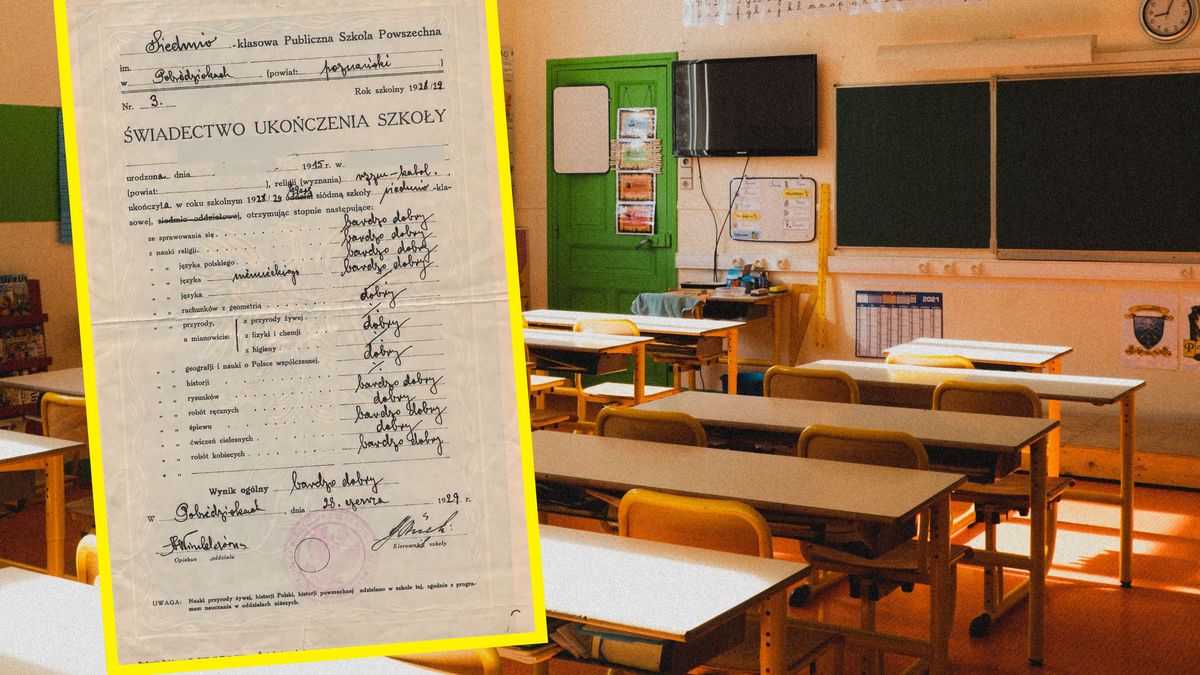 Siedmio -klasowa Publiczna Szkoła Powszechna
im.
w Pobiedziskach (powiat: poznański )
Nr. 3. Rok szkolny 1928/29
ŚWIADECTWO UKOŃCZENIA SZKOŁY
urodzona dnia 1915 r. w
(powiat: ), religii (wyznania) rzym-katol.
ukończyła w roku szkolnym 1928/29 klasę oddział siódmą szkoły siedmio -kla-
sowej, siedmio oddziałowej, otrzymując stopnie następujące:
ze sprawowania się bardzo dobry
z nauki religii bardzo dobry
„ „ języka polskiego bardzo dobry
„ „ języka niemieckiego bardzo dobry
„ „ języka
„ „ rachunków z geometrią dobry
„ „ przyrody, z przyrody żywej
a mianowicie: z fizyki i chemji dobry
z higieny
„ „ geografji i nauki o Polsce współczesnej dobry
„ „ historji
„ „ rysunków bardzo dobry
„ „ robót ręcznych dobry
„ „ śpiewu bardzo dobry
„ „ ćwiczeń cielesnych dobry
„ „ robót kobiecych bardzo dobry
„ „
Wynik ogólny bardzo dobry
W Pobiedziskach, dnia 28. czerwca 1929 r.
Opiekun oddziału Kierownik szkoły
UWAGA: Nauki przyrody żywej, historji Polski, historji powszechnej udzielano w szkole tej, zgodnie z progra-
mem nauczania w oddziałach niższych.
2021